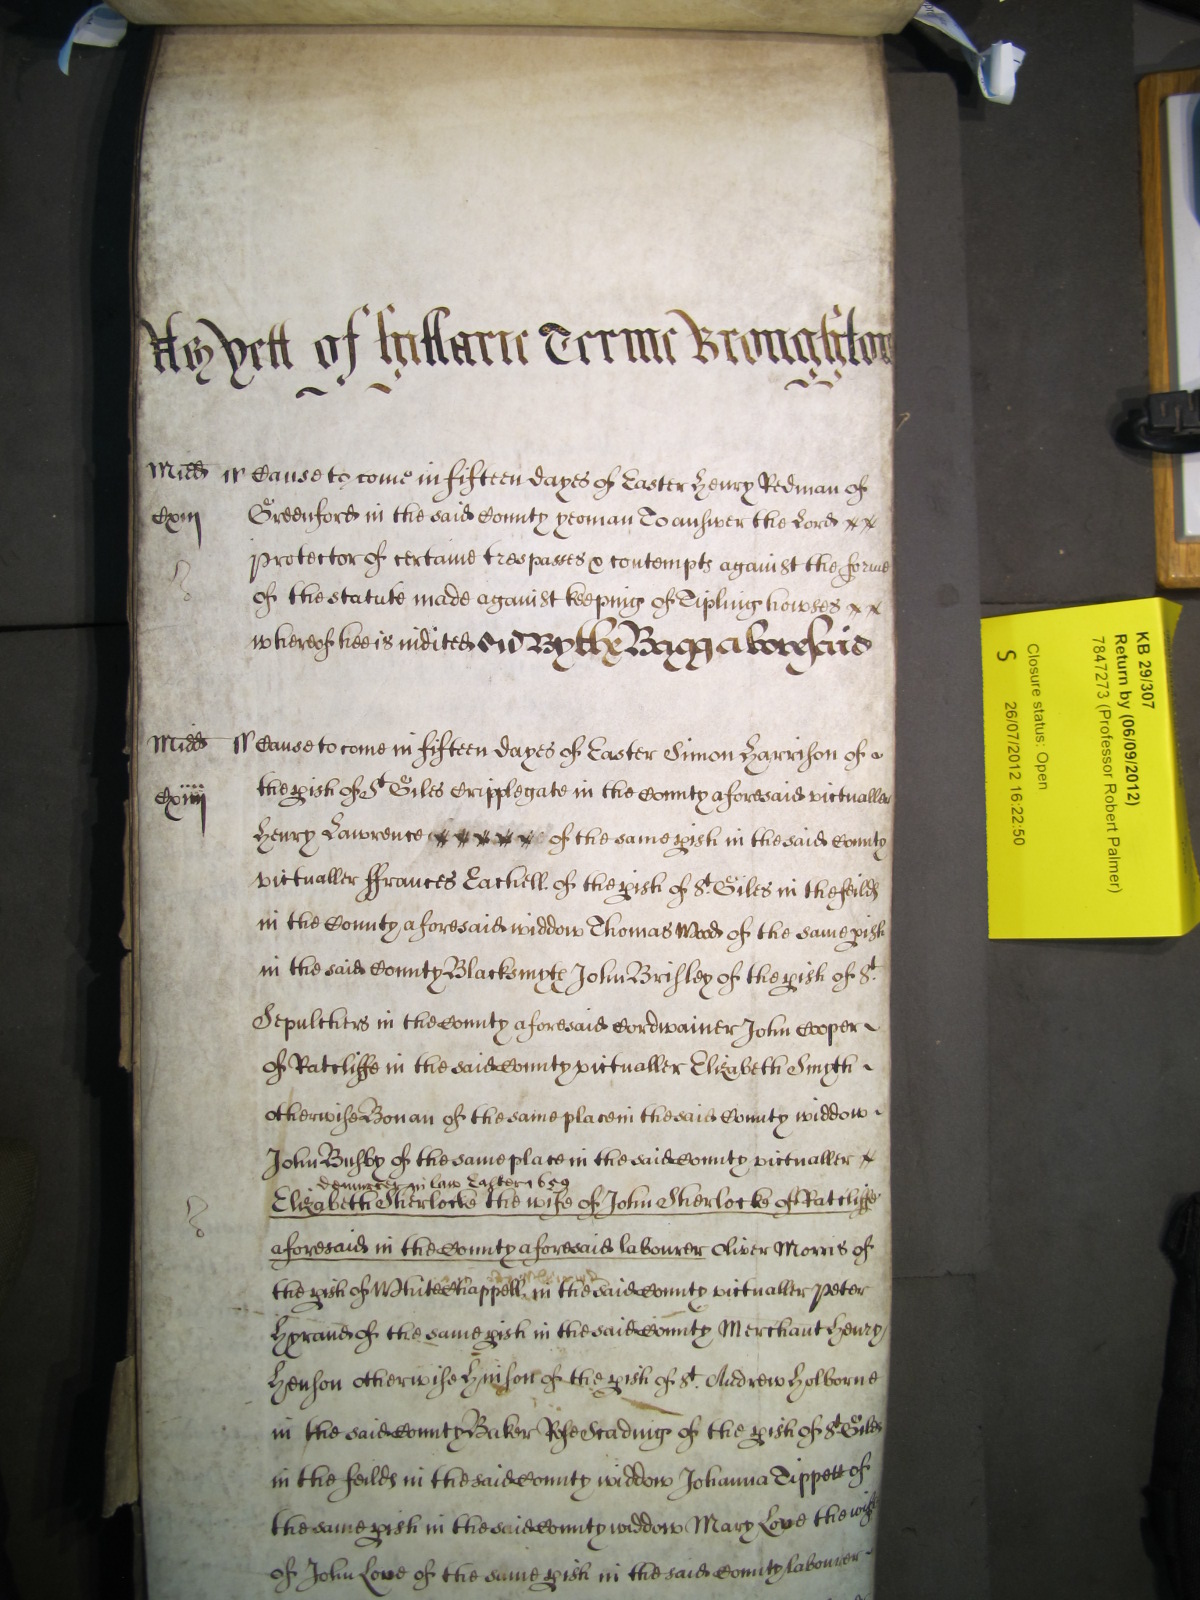 As yett of Hillarie Terme Broughton
Midd ss Cause to come in fifteen dayes of Easter Henry Redman of
Cxiij Greenford in the said County yeoman To answer the Lord
Protector of certaine trespasses & contempts against the forme
of the statute made against keeping of Tipling howses
whereof hee is indited By the Bagg aforesaid
Midd ss Cause to come in fifteen dayes of Easter Simon Harrison of
Cxiiij the pish of St Giles Cripplegate in the County aforesaid victualler
Henry Lawrence of the same pish in the said County
victualler ffrances Cackell of the pish of St Giles in the feilds
in the County aforesaid widdow Thomas Wood of the same pish
in the said County Blacksmyte John Brisley of the pish of St
Sepulchers in the County aforesaid Cordwainer John Cooper
of Ratcliffe in the said County victualler Elizabeth Smyth
otherwise Bonan of the same place in the said County widdow
John Busby of the same place in the said County victualler
demurrer in law Easter 1659
Elizabeth Sherlocke the wife of John Sherlocke of Ratcliffe
aforesaid in the County aforesaid labourer Oliver Morris of
the pish of White Chappell in the said County victualler Peter
Hyrand of the same pish in the said County Merchant Henry
Henson otherwise Hinson of the pish of St Andrew Holborne
in the said County Baker Rose Scading of the pish of St Giles
in the feilds in the said County widdow Johanna Tippett of
the same pish in the said County widdow Mary Love the wife
of John Love of the same pish in the said County labourer
KB 29/307
Return by (06/09/2012)
7847273 (Professor Robert Palmer)
Closure status: Open
S 26/07/2012 16:22:50